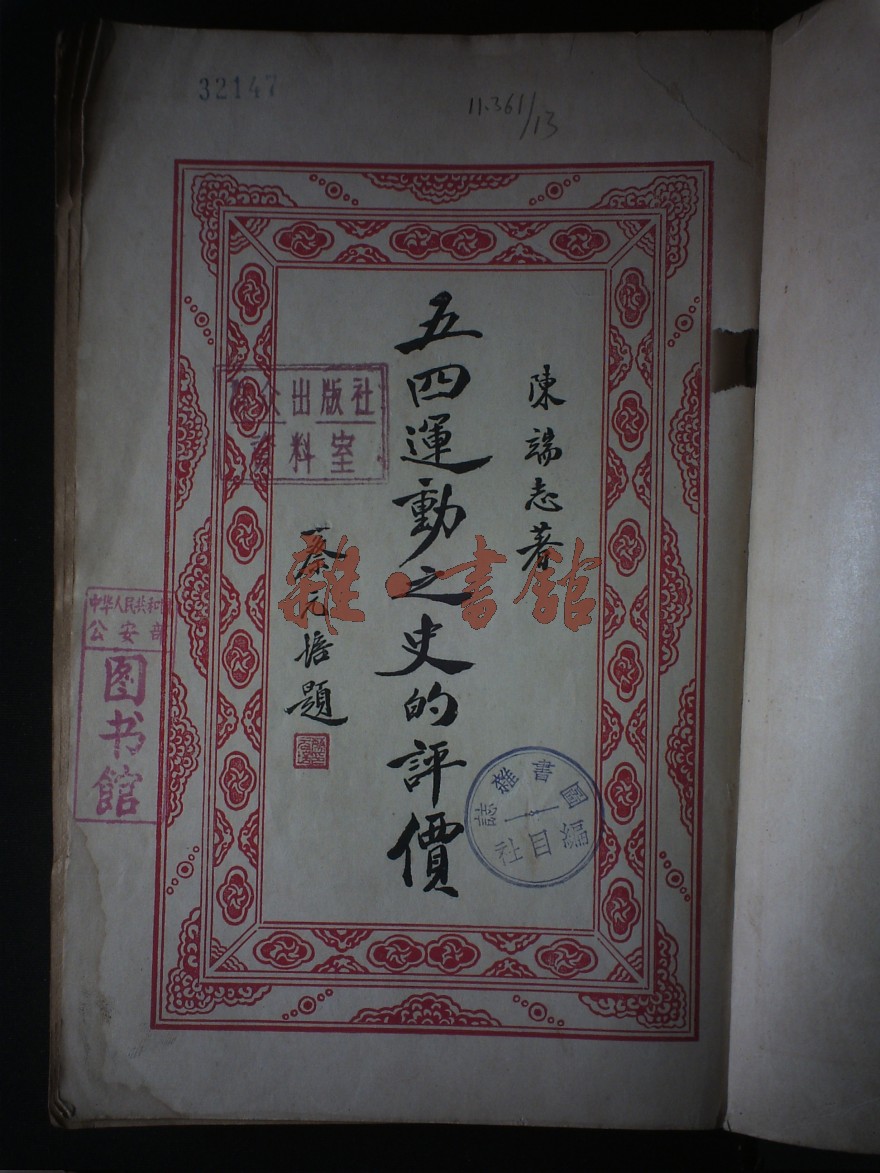 32147
11.361/13
陳端志著
五四運動之史的評價
蔡元培題
众出版社
资料室
中华人民共和国
公安部
图书馆
圖書雜誌
編目社
雜·書館